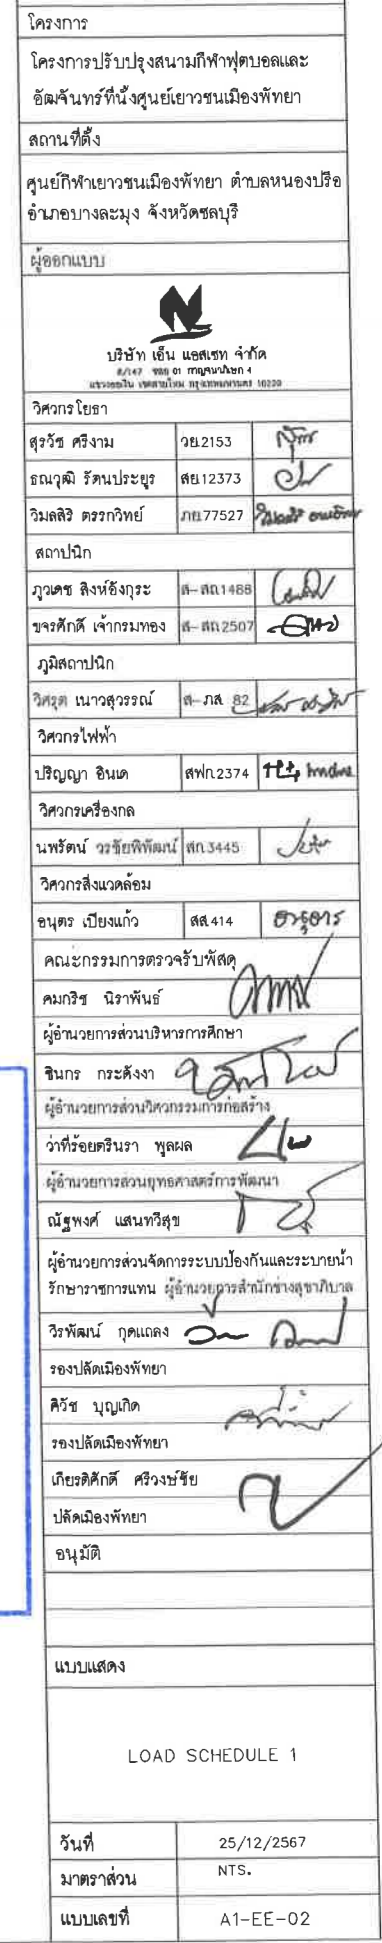 โครงการ
โครงการปรับปรุงสนามกีฬาฟุตบอลและ
อัฒจันทร์ที่นั่งศูนย์เยาวชนเมืองพัทยา
สถานที่ตั้ง
ศูนย์กีฬาเยาวชนเมืองพัทยา ตำบลหนองปรือ
อำเภอบางละมุง จังหวัดชลบุรี
ผู้ออกแบบ
บริษัท เอ็น แอสเซท จำกัด
8/147 ซอย 01 กาญจนาภิเษก 4
แขวงออเงิน เขตสายไหม กรุงเทพมหานคร 10220
วิศวกรโยธา
สุรวัช ศรีงาม วย.2153
ธณวุฒิ รัตนประยูร สย.12373
วิมลสิริ ตรรกวิทย์ ภย.77527
สถาปนิก
ภูวเดช สิงห์อังกุระ ส-สถ.1488
ขจรศักดิ์ เจ้ากรมทอง ส-สถ.2507
ภูมิสถาปนิก
วิศรุต เนาวสุวรรณ์ ส-ภส. 82
วิศวกรไฟฟ้า
ปริญญา อินเด สฟก.2374
วิศวกรเครื่องกล
นพรัตน์ วรชัยพิพัฒน์ สก.3445
วิศวกรสิ่งแวดล้อม
อนุตร เปียงแก้ว สส.414
คณะกรรมการตรวจรับพัสดุ
คมกริช นิราพันธ์
ผู้อำนวยการส่วนบริหารการศึกษา
ชินกร กระดังงา
ผู้อำนวยการส่วนวิศวกรรมการก่อสร้าง
ว่าที่ร้อยตรีนรา พูลผล
ผู้อำนวยการส่วนยุทธศาสตร์การพัฒนา
ณัฐพงศ์ แสนทวีสุข
ผู้อำนวยการส่วนจัดการระบบป้องกันและระบายน้ำ
รักษาราชการแทน ผู้อำนวยการสำนักช่างสุขาภิบาล
วีรพัฒน์ กุดแถลง
รองปลัดเมืองพัทยา
ศิวัช บุญเกิด
รองปลัดเมืองพัทยา
เกียรติศักดิ์ ศรีวงษ์ชัย
ปลัดเมืองพัทยา
อนุมัติ
แบบแสดง
LOAD SCHEDULE 1
วันที่ 25/12/2567
มาตราส่วน NTS.
แบบเลขที่ A1-EE-02